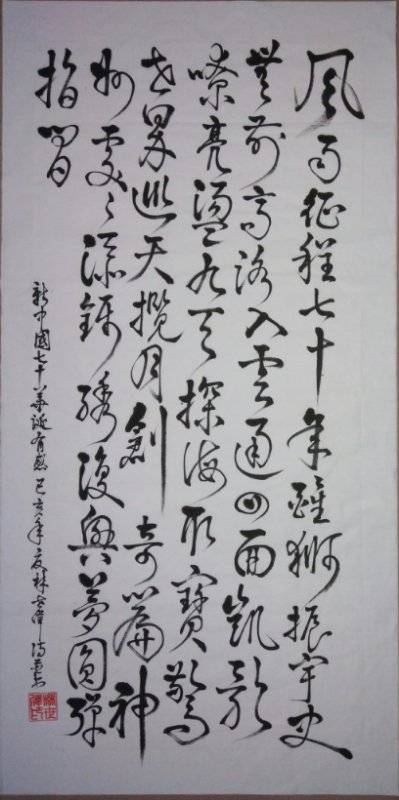 风雨征程七十年醒狮振宇史
無前高路入云通四面凱歌
嘹亮盪九天探海取寶驚
世界巡天攬月創奇篇神
州處々添錦綉復興夢圓彈
指間
新中國七十華誕有感 己亥年